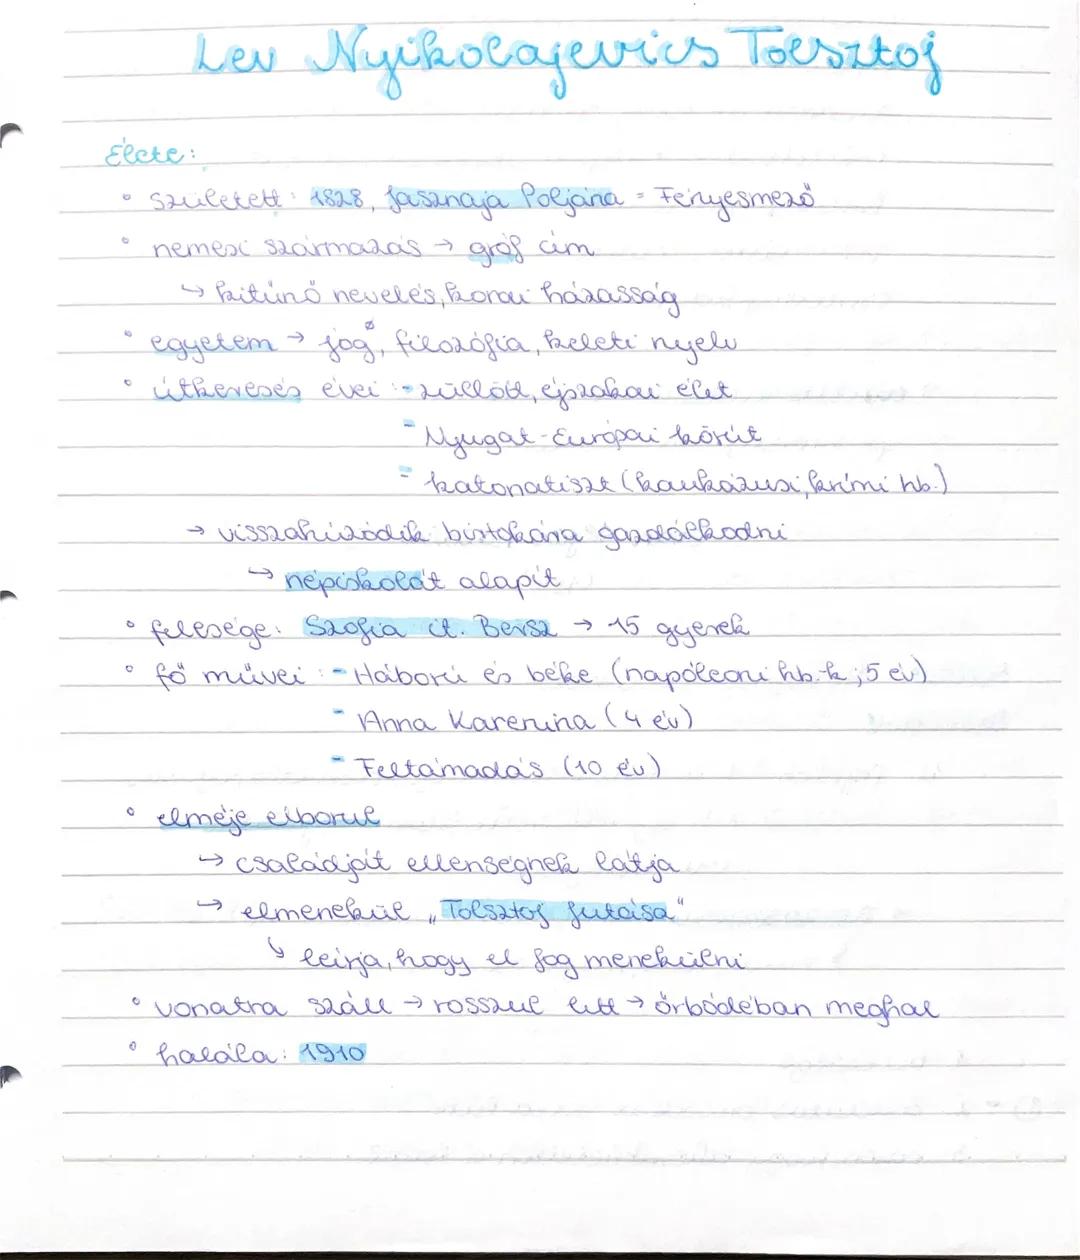 Lev Nyikolajevics Tolsztoj
Élete:
• született: 1828, Jasznaja Poljana = Fényesmező
• nemesi származás → gróf cím
↳ kitűnő nevelés, korai házasság
• egyetem → jog, filozófia, keleti nyelv
• útkeresés évei: - züllött, éjszakai élet
- Nyugat-Európai körút
- katonatiszt (kaukázusi, krími hb.)
→ visszahúzódik birtokára gazdálkodni
↳ népiskolát alapít
• felesége: Szofia it. Bersz → 15 gyerek
• fő művei: - Háború és béke (napóleoni hb.-k; 5 év)
- Anna Karenina (4 év)
- Feltámadás (10 év)
• elméje elborul
↳ családját ellenségnek látja
→ elmenekül „Tolsztoj futása"
↳ leírja, hogy el fog menekülni
• vonatra száll → rosszul lett → őrbódéban meghal
• halála: 1910